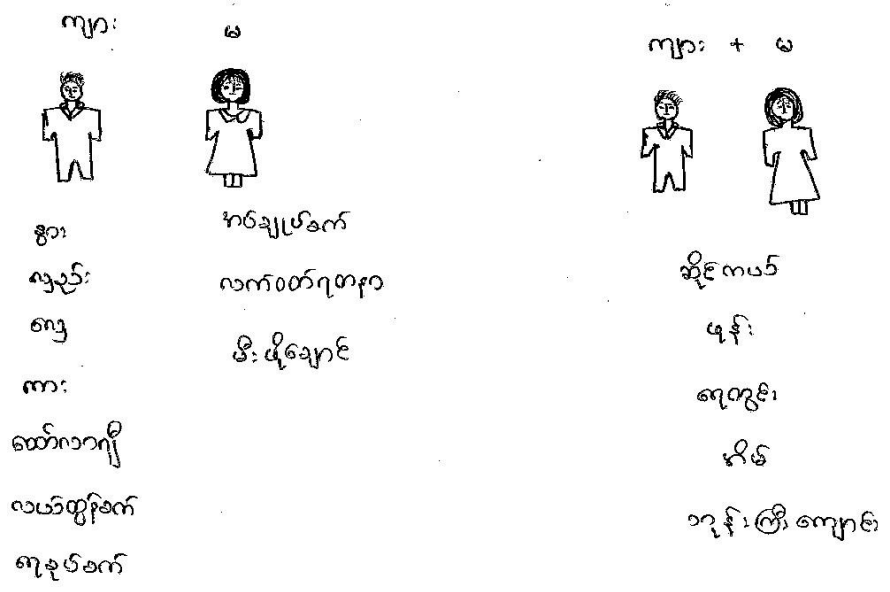 ကျား
နွား
လှည်း
လှေ
ကား
ထော်လာဂျီ
လယ်ထွန်စက်
ရေစုပ်စက်
မ
အပ်ချုပ်စက်
လက်ဝတ်ရတနာ
မီးဖိုချောင်
ကျား + မ
ဆိုင်ကယ်
ဖုန်း
ရေတွင်း
အိမ်
ဘုန်းကြီးကျောင်း